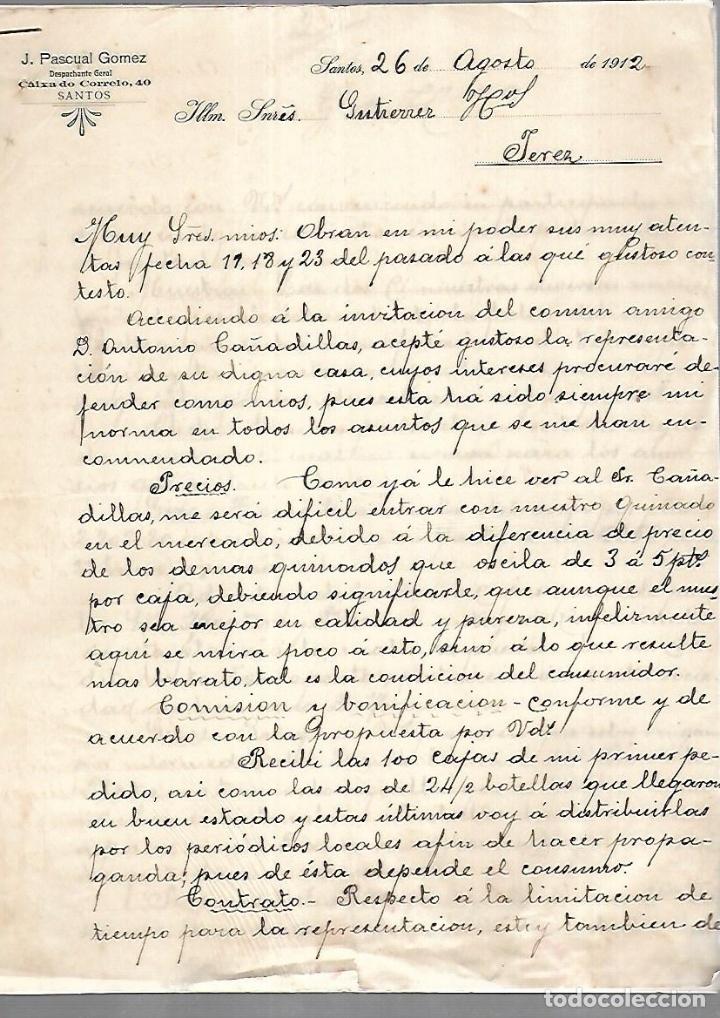 J. Pascual Gomez
Despachante Geral
Caixa do Correio, 40
SANTOS
Santos, 26 de Agosto de 1912
Illm. Snrēs. Gutierrez Hos
Jerez
Muy Sres. mios: Obran en mi poder sus muy aten-
tas fecha 11, 18 y 23 del pasado á las qué gustoso con-
testo.
Accediendo á la invitacion del comun amigo
D. Antonio Cañadillas, acepté gustoso la representa-
ción de su digna casa, cuyos intereses procuraré de-
fender como mios, pues está há sido siempre mi
norma en todos los asuntos que se me han en-
comnendado.
Precios. Como yá le hice ver al Sr. Caña-
dillas, me será dificil entrar con nuestro Quinado
en el mercado, debido á la diferencia de precio
de los demas quinados que oscila de 3 á 5 pts.
por caja, debiendo significarle, que aunque el nues-
tro sea mejor en calidad y pureza, infelizmente
aquí se mira poco á esto, sinó á lo que resulte
mas barato, tal es la condicion del consumidor.
Comision y bonificacion - conforme y de
acuerdo con la propuesta por Vds.
Recibi las 100 cajas de mi primer pe-
dido, asi como las dos de 24/2 botellas que llegaron
en buen estado y estas últimas voy á distribuirlas
por los periódicos locales afin de hacer propa-
ganda, pues de ésta depende el consumo.
Contrato. - Respecto á la limitacion de
tiempo para la representacion, estoy tambien de
todocoleccion